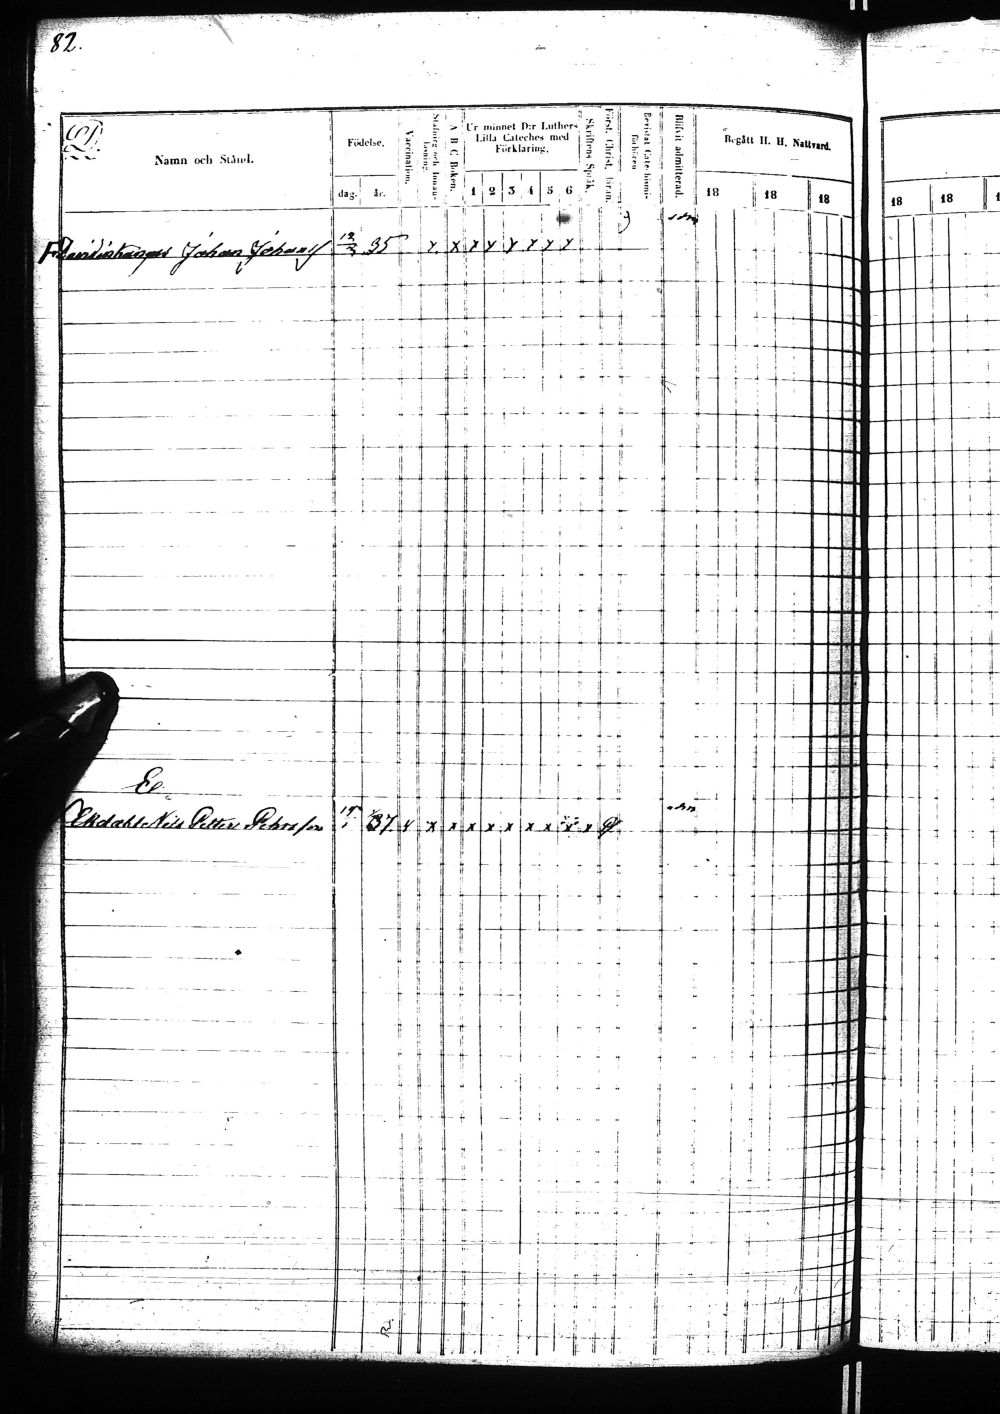 82.
D.
Namn och Stånd.
Födelse.
dag. år.
Vaccination.
Stafning och Innan-läsning.
A B C Boken.
Ur minnet D:r Luthers
Lilla Cateches med
Förklaring.
1 2 3 4 5 6
Skriftens Språk.
Först. Christ. läran.
Bevistat Catechismi-förhören
Blifvit admitterad.
Begått H. H. Nattvard.
18 18 18
18 18 1
Johan Johans 35 x x x x x x x x
E.
Ekdahl Nils Petter Pehrsson 37 x x x x x x x x x x